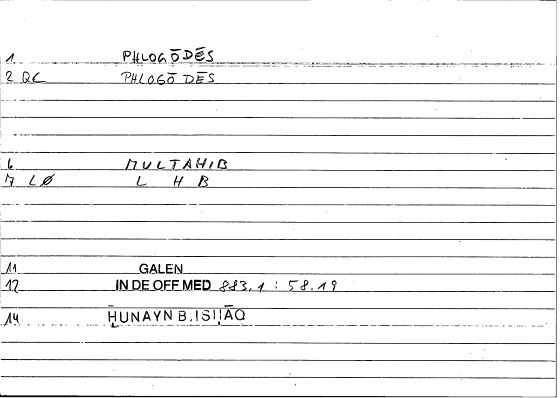 1 PHLOGŌDĒS
2 QC PHLOGŌDĒS
6 MULTAHIB
7 LØ L H B
11 GALEN
12 IN DE OFF MED 883,1 : 58.19
14 ḤUNAYN B. ISḤĀQ